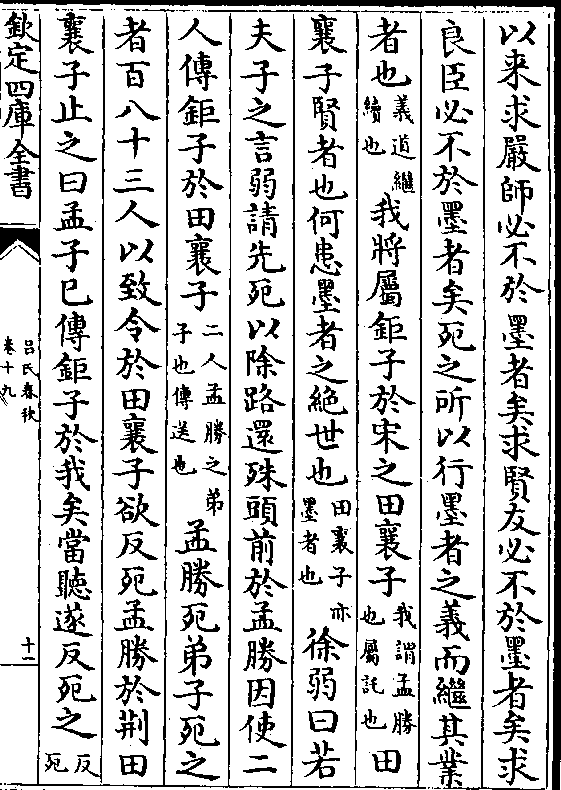 以来求嚴師必不於墨者矣求賢友必不於墨者矣求
良臣必不於墨者矣死之所以行墨者之義而繼其業
者也義道繼續也我將屬鉅子於宋之田襄子我謂孟勝也屬託也田
襄子賢者也何患墨者之絕世也田襄子亦墨者也徐弱曰若
夫子之言弱請先死以除路還歿頭前於孟勝因使二
人傳鉅子於田襄子二人孟勝之弟子也傳送也孟勝死弟子死之
者百八十三人以致令於田襄子欲反死孟勝於荆田
襄子止之曰孟子已傳鉅子於我矣當聽遂反死之反死
欽定四庫全書
呂氏春秋
卷十九
十一